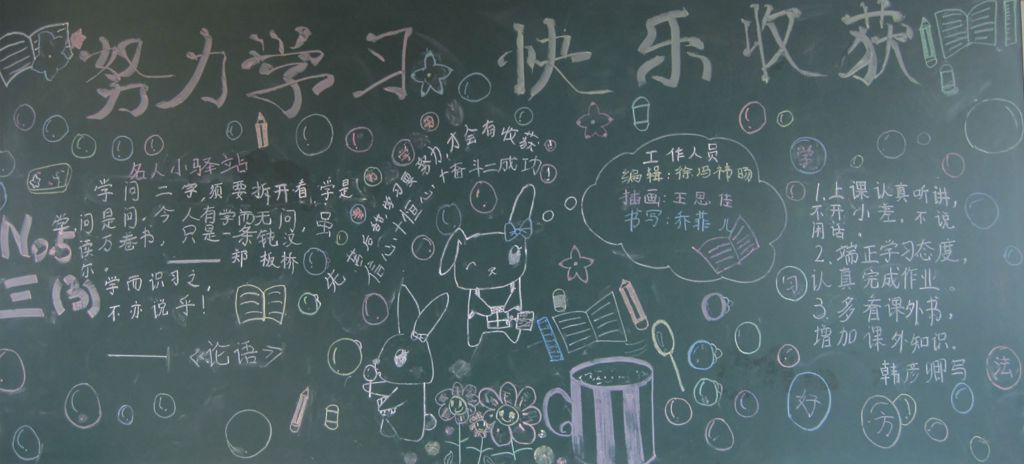 努力学习 快乐收获
名人小驿站
学问二字,须要拆开看,学是
学,问是问,今人有学而无问,虽
读万卷书,只是一条钱没
尔。——郑板桥
No.5
三(3)
学而识习之,
不亦说乎!
——《论语》
努力才会有收获
信心+恒心+奋斗=成功!
工作人员
编辑:徐冯柿旸
插画:王思佳
书写:乔菲儿
1.上课认真听讲,
不开小差,不说
闲话。
2.端正学习态度,
认真完成作业。
3.多看课外书,
增加课外知识。
韩彦卿写
学
习
好
方
法